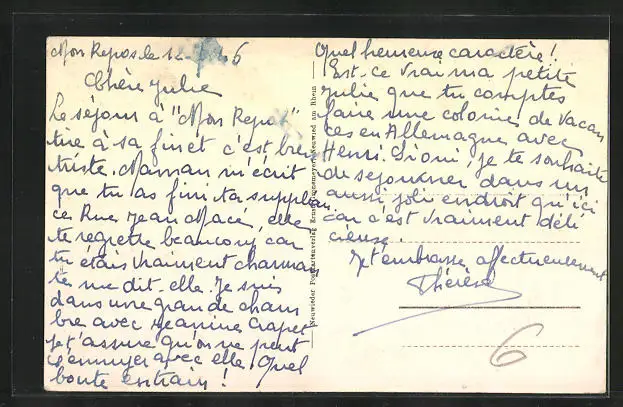 Mon Repos le 12
Chère Julie
Le séjour à "Mon Repos"
tire à sa fin et c'est bien
triste. Maman m'écrit
que tu as fini ta suppléan
ce Rue Jean Macé, elle
te regrette beaucoup car
tu étais vraiment charman
te me dit-elle. Je suis
dans une grande cham
bre avec Jeannine
je t'assure qu'on ne peut
s'ennuyer avec elle. Quel
boute entrain!
Neuwieder Postkartenverlag Neuwied am Rhein
Quel heureuse caractère!
Est-ce vrai ma petite
Julie que tu comptes
faire une colonie de vacan
ces en Allemagne avec
Henri. Si oui, je te souhaite
de séjourner dans un
aussi joli endroit qu'ici
car c'est vraiment déli
cieuse.
Je t'embrasse affectueusement
Thérèse
6